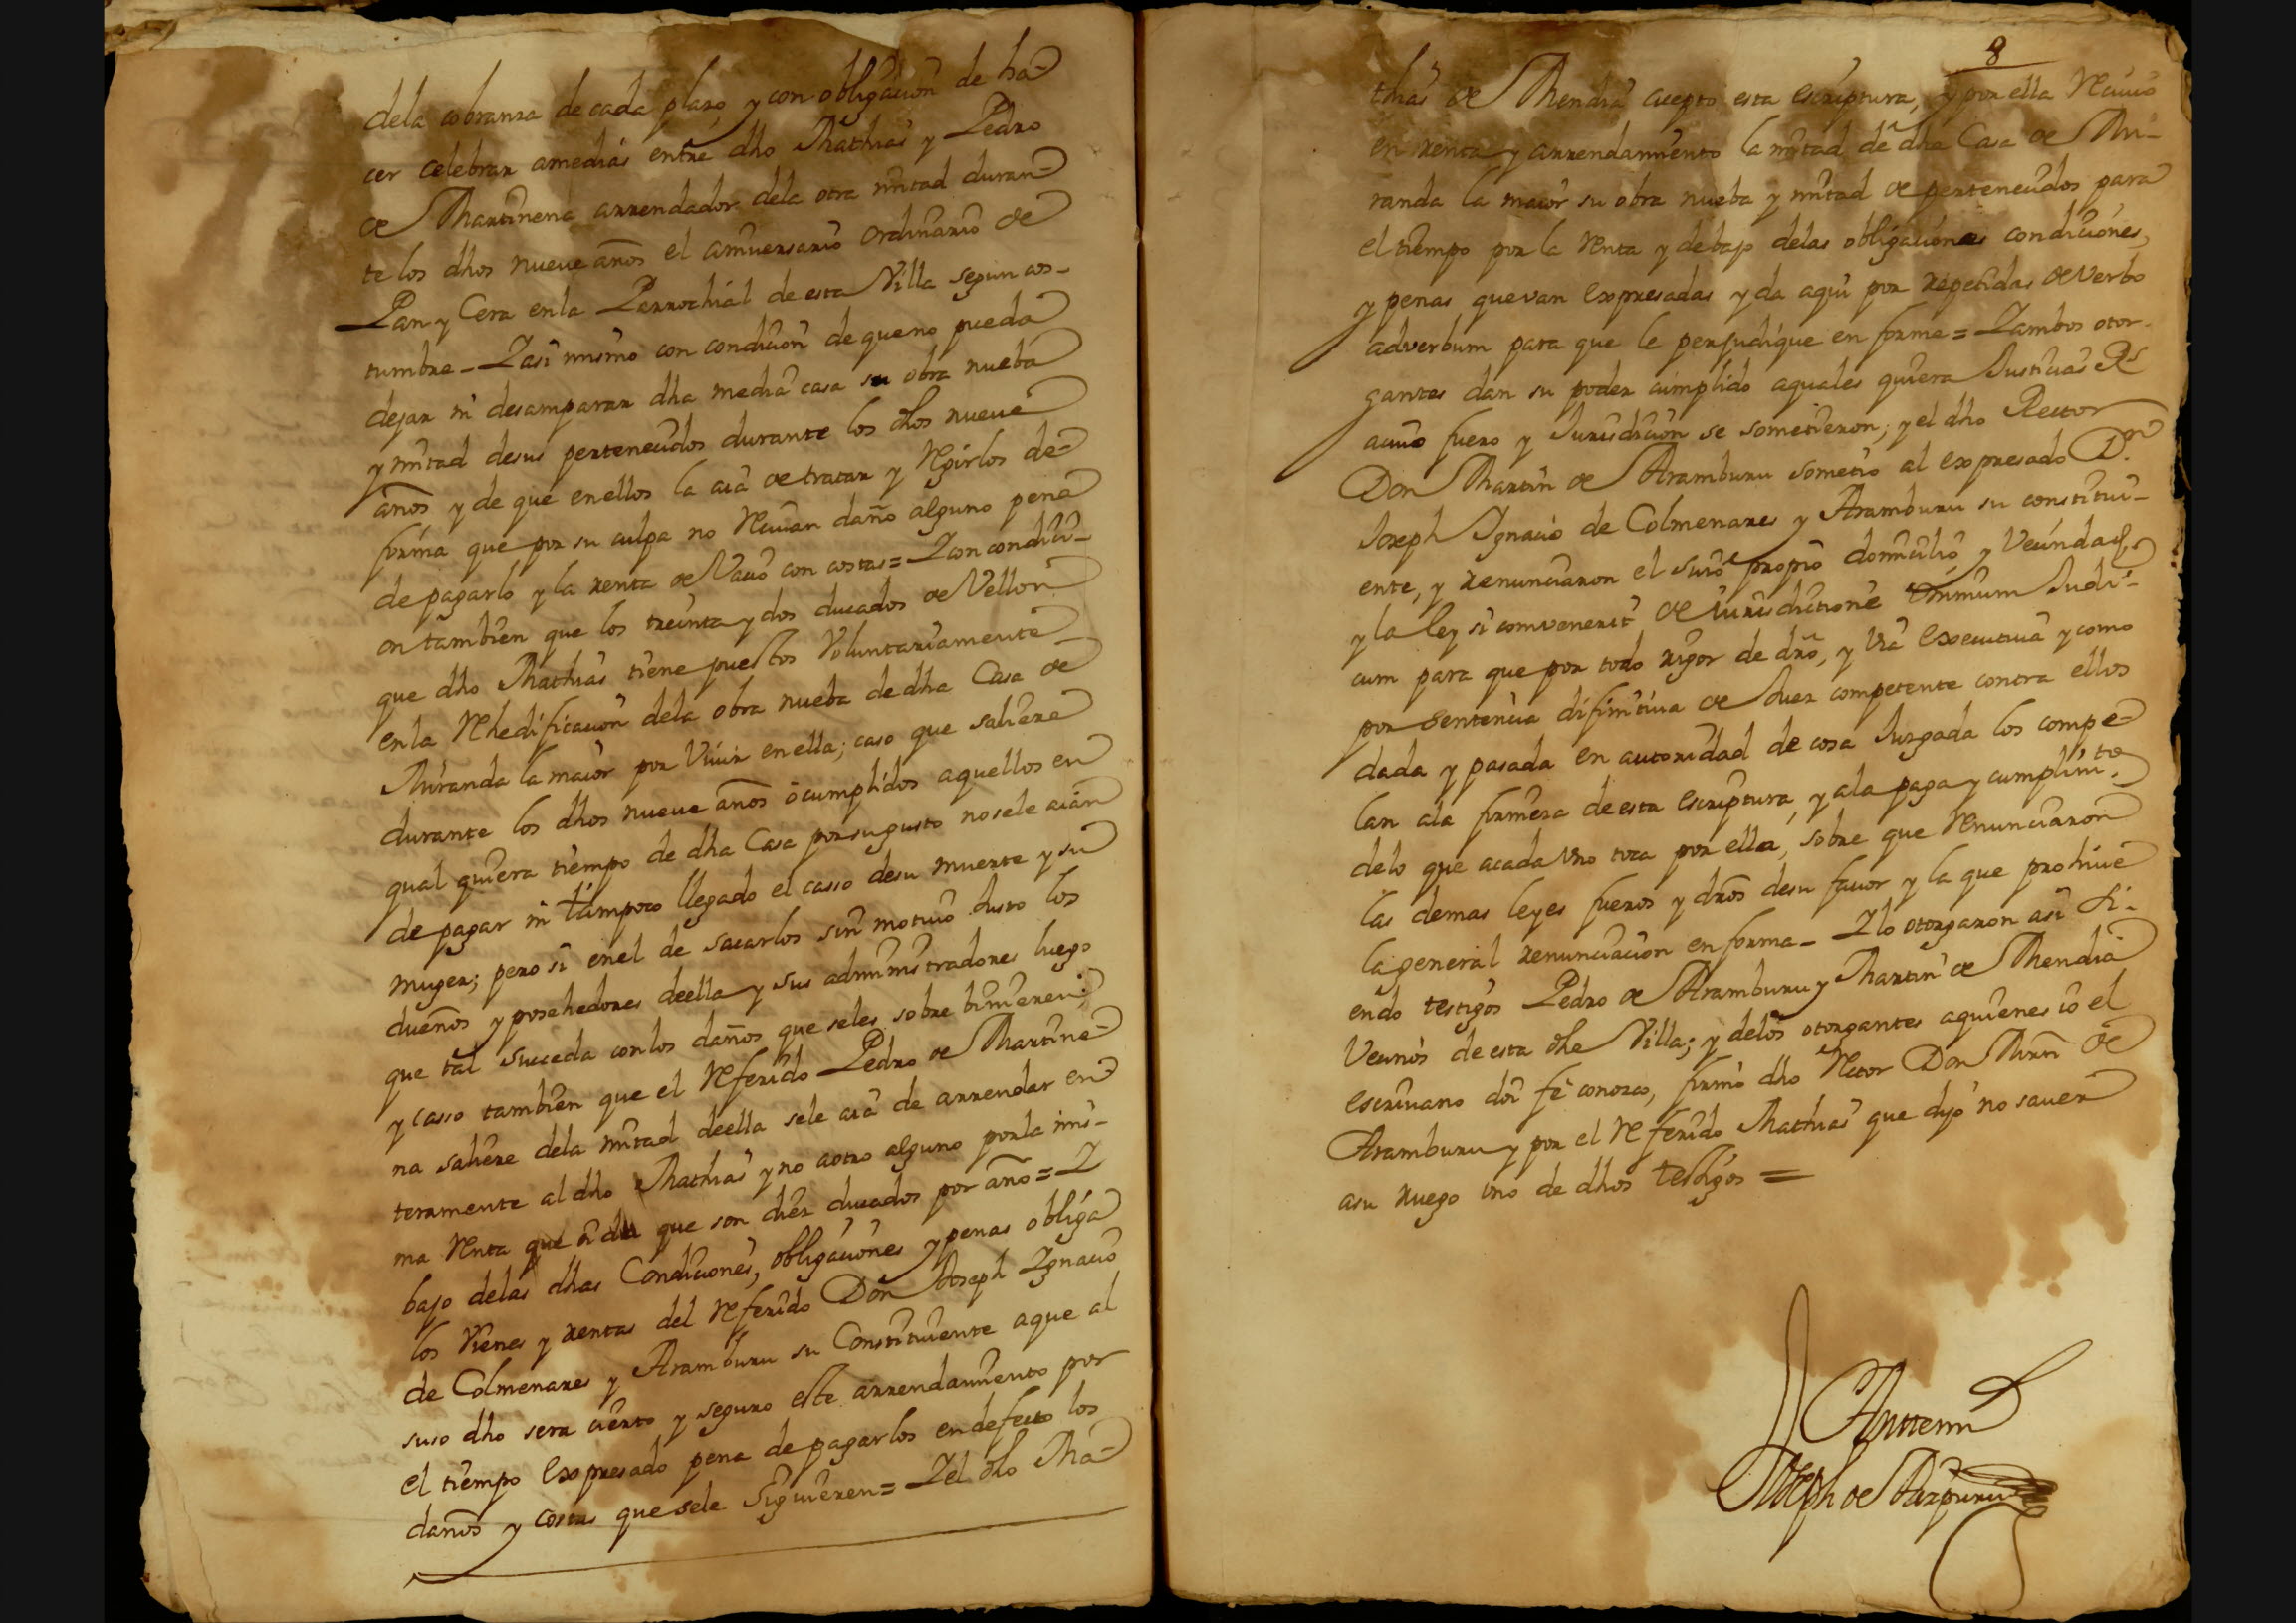 dela cobranza de cada plazo, y con obligacion de ha-
cer celebrar amedias entre dho Mathias y Pedro
de Martinena arrendador dela otra mitad duran-
te los dhos nueve años el aniversario ordinario de
Pan y Cera enla Parrochial de esta Villa segun cos-
tumbre - Y asi mismo con condicion de queno pueda
dejar ni desamparar dha media casa su obra nueba
y mitad desus pertenecidos durante los dhos nueve
años y de que enellos la aia de tratar y Regirlos de
forma que por su culpa no Recivan daño alguno pena
de pagarlo y la renta de Vacio con costas = Y con condici-
on tambien que los treinta y dos ducados de Vellon
que dho Mathias tiene puestos Voluntariamente
enla Rehedificacion dela obra nueba de dha Casa de
Miranda la maior por Vivir enella; caso que saliere
durante los dhos nueve años ò cumplidos aquellos en
qual quiera tiempo de dha Casa porsugusto nosele aian
de pagar ni tampoco llegado el casso desu muerte y su
muger; pero si enel de sacarlos sin motivo Justo los
dueños y posehedores deella y sus administradores luego
que tal suceda conlos daños que seles sobre binieren;
y casso tambien que el Referido Pedro de Martine-
na saliere dela mitad deella sele aia de arrendar en-
teramente al dho Mathias y no aotro alguno porla mis-
ma Renta que que son diez ducados por año = Y
bajo delas dhas Condiciones, obligaciones y penas obliga
los Vienes y rentas del Referido Don Joseph Ygnacio
de Colmenares y Aramburu su Constituiente aque al
suso dho sera cierto y seguro este arrendamiento por
el tiempo Expresado pena de pagarlos endefecto los
daños y costas que sele Siguieren = Y el dho Ma-
8
thias de Mendia acepto esta escriptura, y por ella Recivio
en renta y arrendamiento la mitad de dha Casa de Mi-
randa la maior su obra nueba y mitad de pertenecidos para
el tiempo por la Renta y debajo delas obligaciones condiciones,
y penas quevan Expresadas y da aqui por repetidas de Verbo
adverbum para que le perjudique en forma = Y ambos otor-
gantes dan su poder cumplido aquales quiera Justicias Rs
acuio fuero y Jurisdicion se sometieron; y el dho Rector
Don Martin de Aramburu sometio al expresado Dn.
Joseph Ygnacio de Colmenares y Aramburu su constitui-
ente, y renunciaron el suio propio domicilio y Vecindad,
y la ley si comvenerit de iurisdictione omnium Judi-
cum para que por todo rigor de dro, y via Executiva y como
por sentencia difinitiva de Juez competente contra ellos
dada y pasada en autoridad de cosa Juzgada los compe-
lan ala firmeza de esta escriptura, y ala paga y cumplimto.
delo que acada Uno toca por ella, sobre que Renunciaron
las demas leyes fueros y dros desu favor y la que prohive
la general renunciacion en forma - Y lo otorgaron asi si-
endo testigos Pedro de Aramburu y Martin de Mendia
Vecinos de esta dha Villa; y delos otorgantes aquienes io el
escrivano doi fé conozco, firmó dho Retor Don Mrn de
Aramburu y por el Referido Mathias que dijo no saver
asu ruego uno de dhos testigos =
Antemi
Joseph de Aizpuru